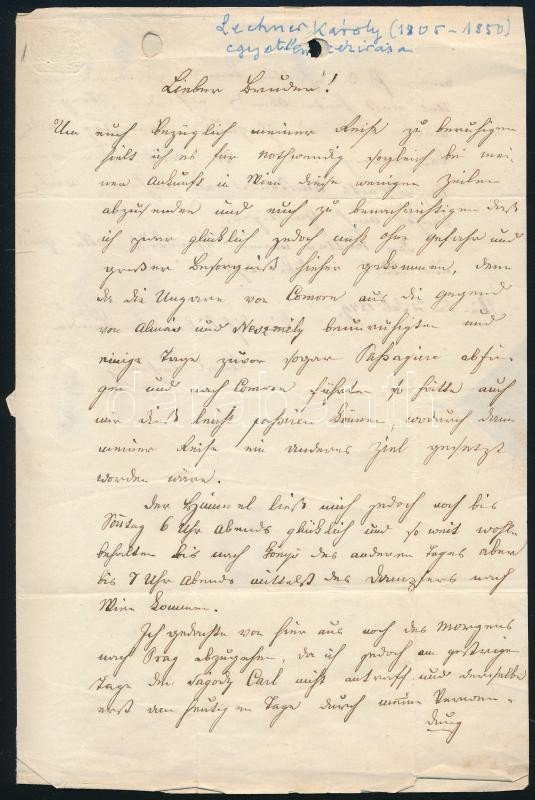 Lechner Károly (1805-1850)
egyetlen kézirása
Lieber Bruder!
Um euch bezüglich meiner Reise zu beruhigen
hielt ich es für nothwendig sogleich bei mei-
ner Ankunft in Wien diese wenigen Zeilen
abzusenden und euch zu benachrichtigen daß
ich zwar glücklich jedoch nicht ohne Gefahr und
großer Besorgniß hieher gekommen, denn
da die Ungarn von Comorn aus die Gegend
von Almás und Neszmély beunruhigten und
einige Tage zuvor sogar Passagiere abfin-
gen und nach Comorn führten so hätte auch
mir dieß leicht passiren können wodurch dann
meiner Reise ein anderes Ziel gesetzt
worden wäre.
Der Himmel ließ mich jedoch noch bis
Sontag 6 Uhr Abends glücklich und so weit wohl-
behalten bis nach Gönyö des anderen Tages aber
bis 7 Uhr Abends mittelst des Dampfers nach
Wien kommen.
Ich gedachte von hier aus noch des Morgens
nach Prag abzugehen, da ich jedoch am gestrigen
Tage den Sagody Carl nicht antraff und derselbe
erst am heutigen Tage durch meine Verwen-
dung
darabanth